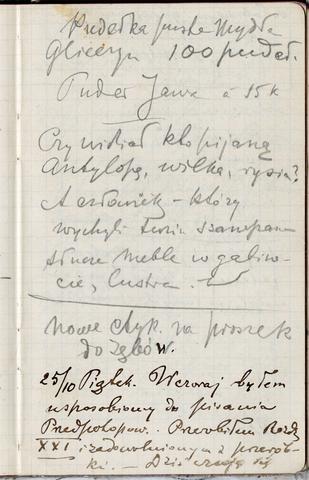 Pudełka puste Mydła
Gliceryn 100 pudeł.
Puder Jawa à 15 k
Czy widział kto pijaną
Antylopę, wilka, rysia?
A człowiek – który
wychyli tuzin szampana
tłucze meble w gabine-
cie, lustra.
Nowe etyk. na proszek
do zębów.
25/10 Piątek. Wczoraj byłem
usposobiony do pisania
Przedpotopow. Przerobiłem Rozdz
XXI i zadowolniony z przerób-
ki. — Dziś czuję się